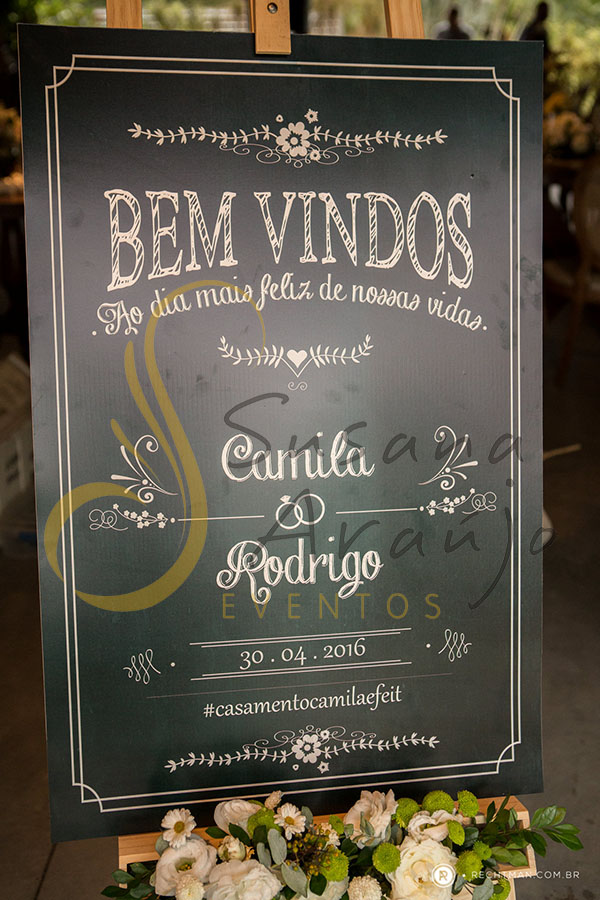 BEM VINDOS
Ao dia mais feliz de nossas vidas.
Camila
Rodrigo
30.04.2016
#casamentocamilaefeit
Susana
Araújo
EVENTOS
R • RECHTMAN.COM.BR